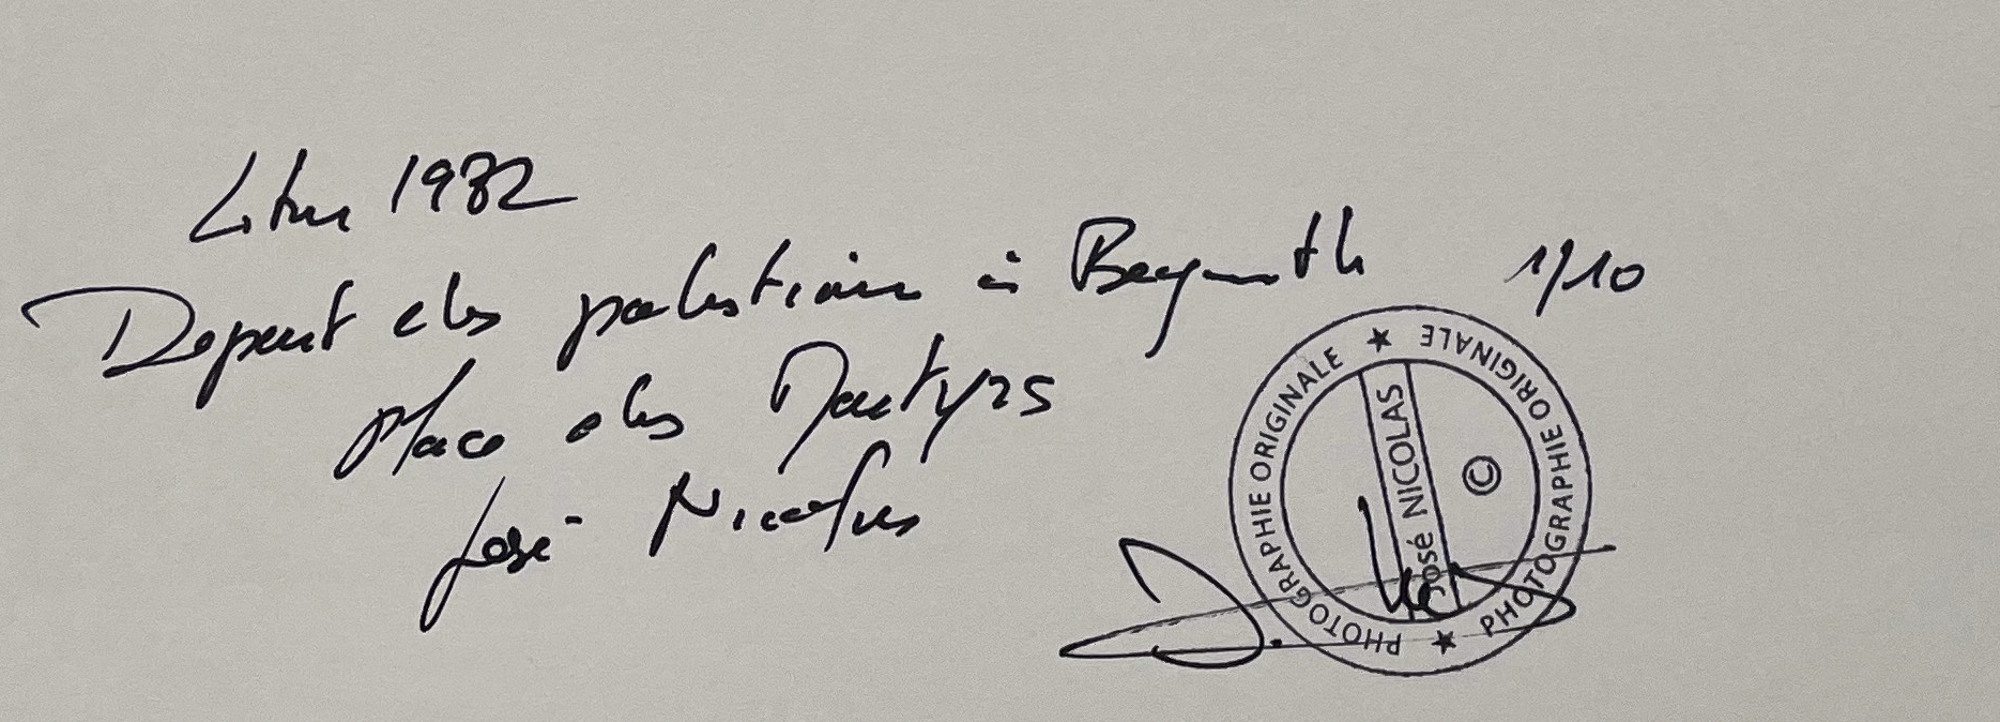 Liban 1982
Depart des palestiniens à Beyrouth 1/10
place des Martyrs
José Nicolas
PHOTOGRAPHIE ORIGINALE ★ PHOTOGRAPHIE ORIGINALE ★
José NICOLAS
©